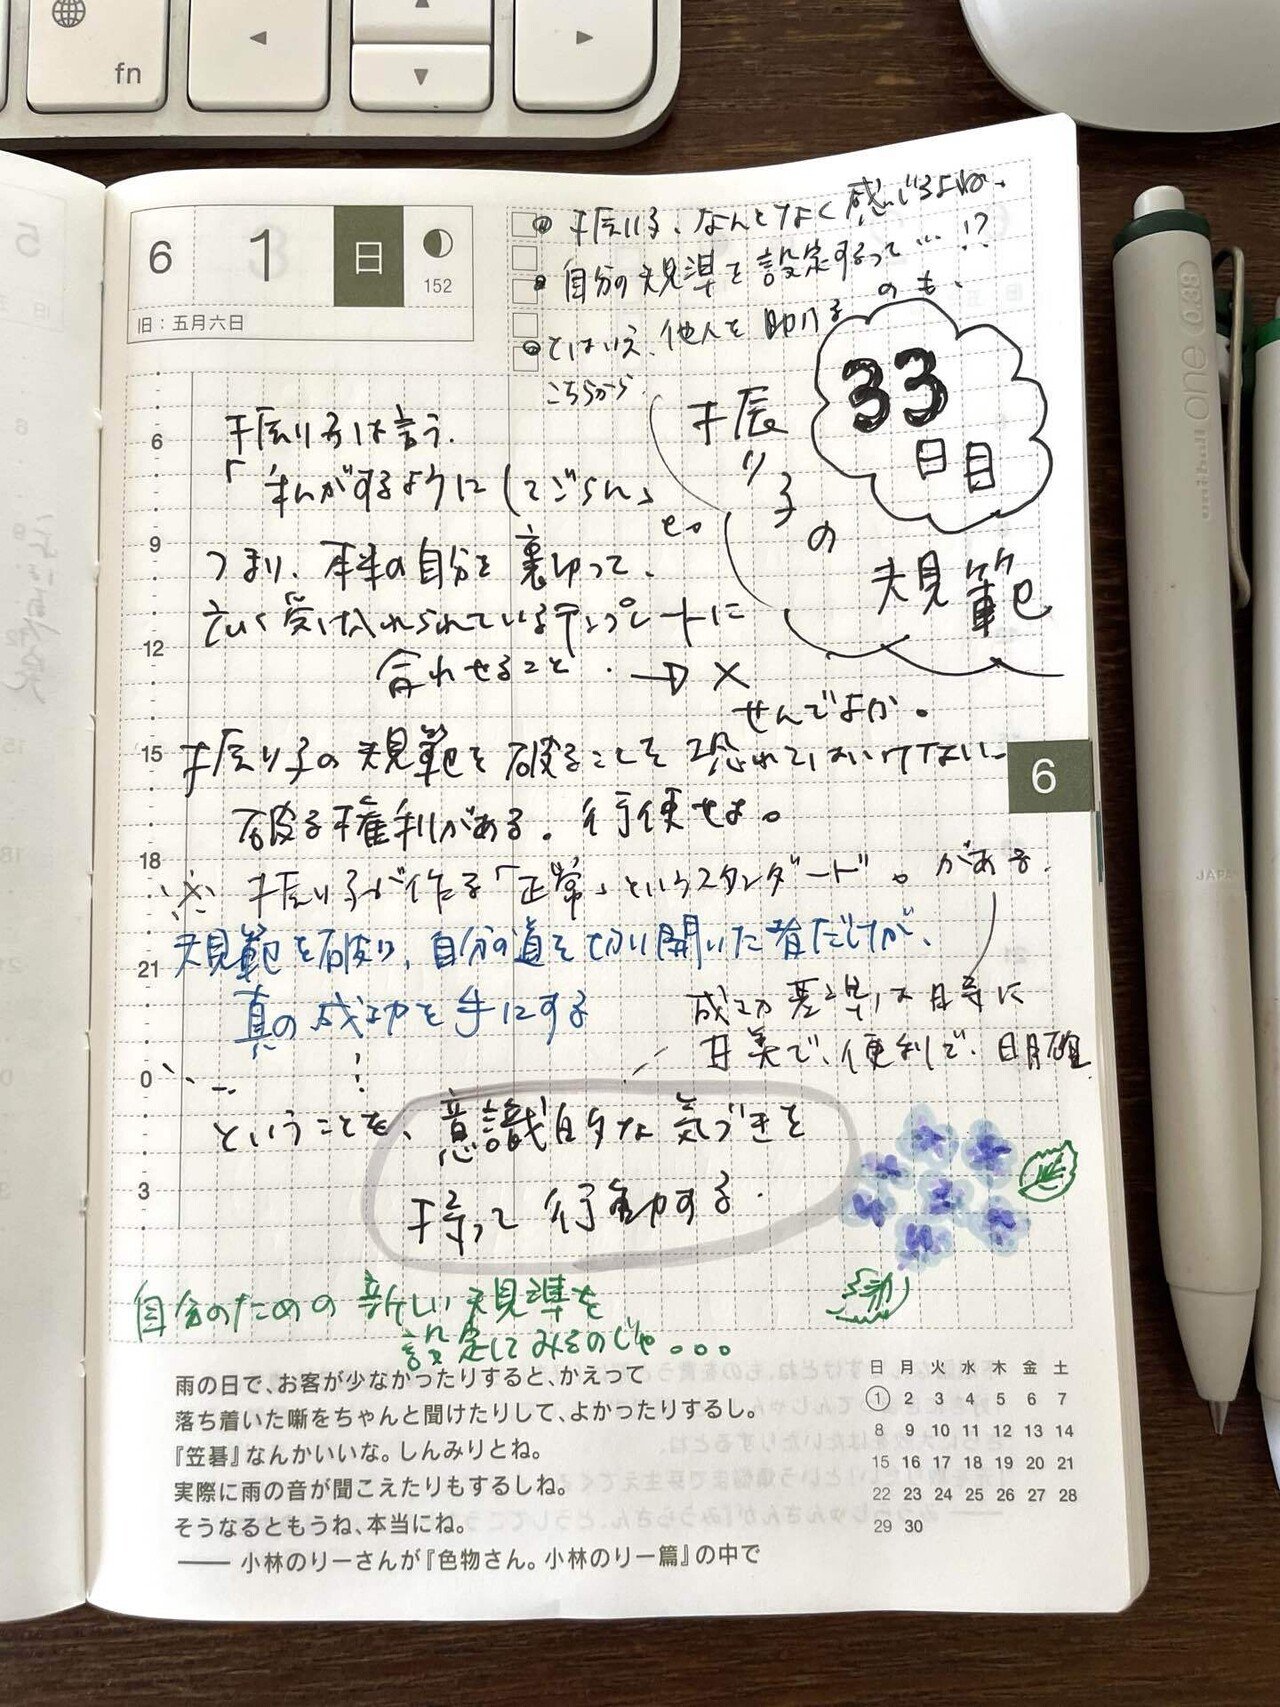 fn
6 1 日
152
旧：五月六日
振り子、なんとなく感じるよね、
自分の規準を設定するって…!?
とはいえ、他人を助けるのも、
こちらから
33
日目
振り子の規範
6
9
12
15
18
21
0
3
振り子は言う、
「私がするようにしてごらん」
と。
つまり、本来の自分を裏切って、
広く受け入れられているテンプレートに
合わせること。→×
せんでよか。
振り子の規範を破ることを恐れてはいけない。
破る権利がある。行使せよ。
振り子が作る「正常」というスタンダード。がある。
規範を破り、自分の道を切り開いた者だけが、
真の成功を手にする
成功基準は常に
甘美で、便利で、明確
ということを、意識的な気づきを
持って行動する。
自分のための新しい規準を
設定してみるのじゃ。。。
6
雨の日で、お客が少なかったりすると、かえって
落ち着いた噺をちゃんと聞けたりして、よかったりするし。
『笠碁』なんかいいな。しんみりとね。
実際に雨の音が聞こえたりもするしね。
そうなるともうね、本当にね。
—— 小林のりーさんが『色物さん。小林のりー篇』の中で
日 月 火 水 木 金 土
1 2 3 4 5 6 7
8 9 10 11 12 13 14
15 16 17 18 19 20 21
22 23 24 25 26 27 28
29 30
uni-ball one 0.38
JAPAN